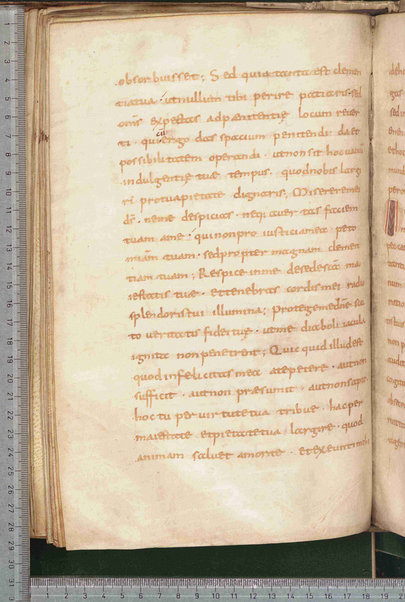 obsorbuisset; Sed quia tanta est clemen
tia tua · ut nullum tibi perire patiaris · sed
omīs expectas ad paenitentię locum rever
ti · qui ergo das spatium penitendi · da et
possibilitatem operandi · ut non sit hoc vacuū
indulgentię tuę tempus · quod nobis larg
ri pro tua pietate dignaris; Miserere mei
dš · ne me despicias · neq; avertas faciem
tuam a me · qui non pro iustitia mea · peto
miam tuam · sed propter magnam clemen
tiam tuam; Respice in me de sede scā ma
iestatis tuę · et tenebras cordis mei radio
splendoris tui illumina; Protege me dne scu
to veritatis fidei tuę · ut me diaboli iacula
ignita non penetrent; Quicquid illud est
quod infelicitas mea a te petere · aut non
sufficit · aut non praesumit · aut non sapit
hoc tu per virtutem tua tribue · hac per
maiestate et pietate tua largire · quod
animam salvet a morte · et exeunti mihi